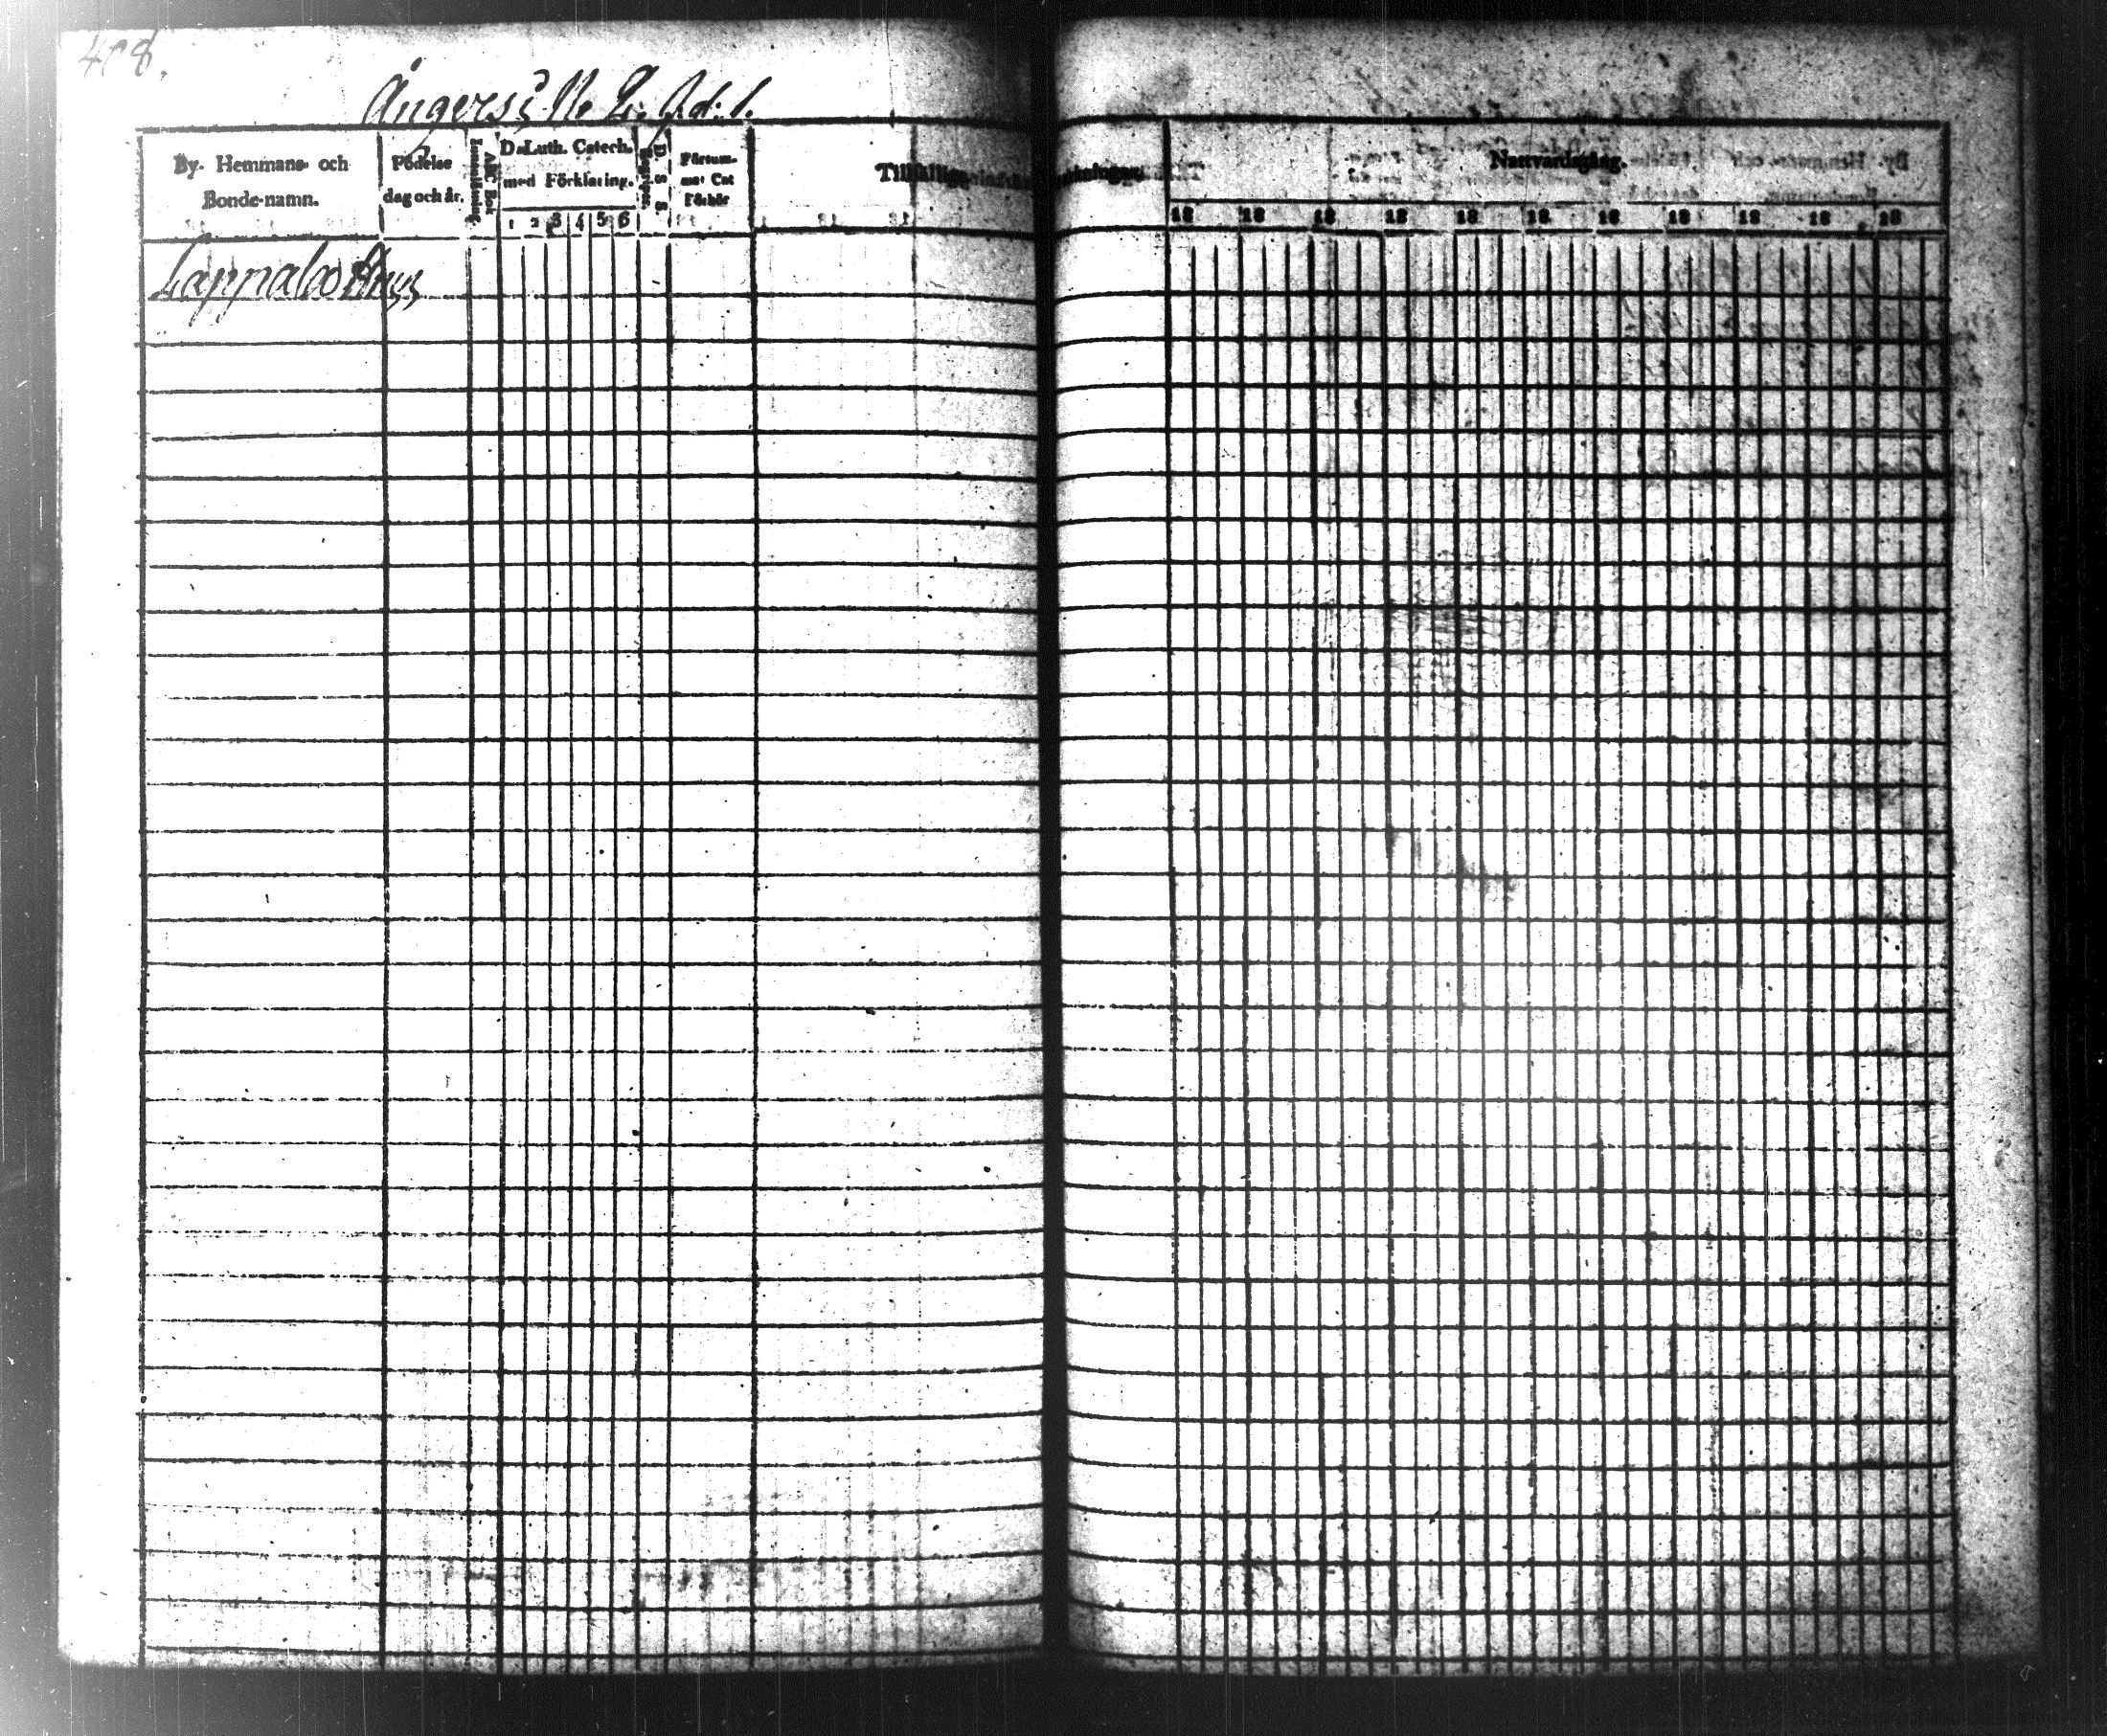 408.
Ångersj N. 2. Ad: 1.
By- Hemmans- och Bonde-namn.
Födelse dag och år.
D. Luth. Catech. med Förklaring.
1 2 3 4 5 6
Försummat Cat Förhör
Tillfällige
Nattvardsgång.
18 18 18 18 18 18 18 18 18 18 18
Lappalax